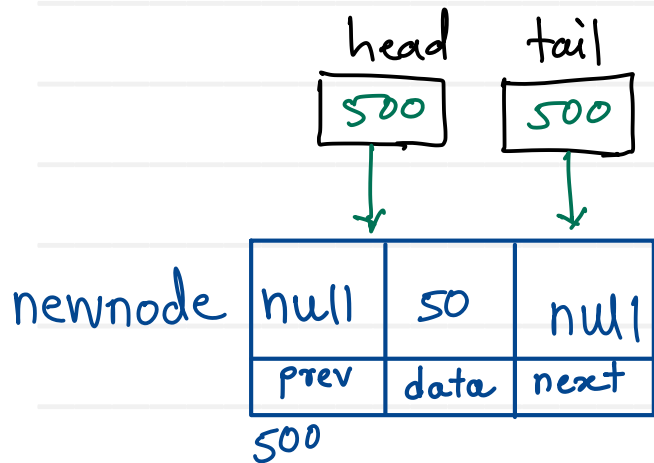 head tail
500 500
newnode null 50 null
prev data next
500